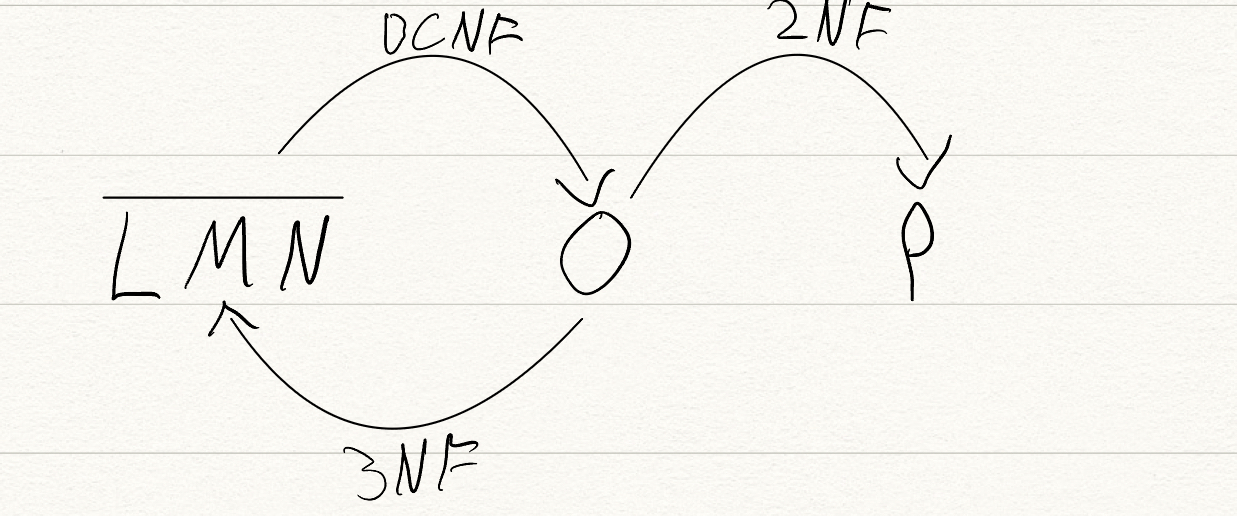 BCNF 2NF
L M N O P
3NF